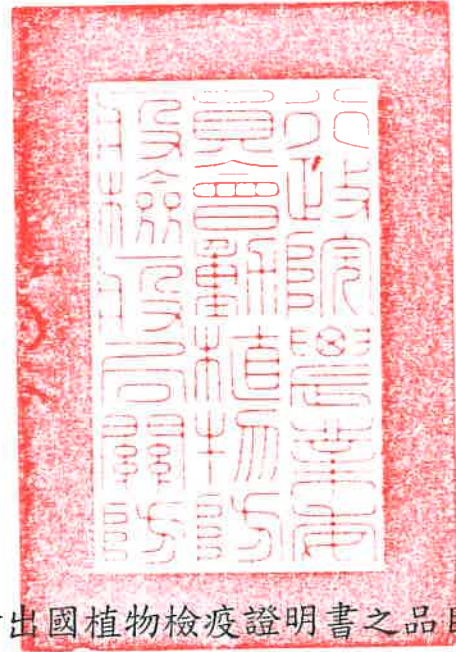 行政院農業委
員會動植物防
疫檢疫局關防
出國植物檢疫證明書之品目